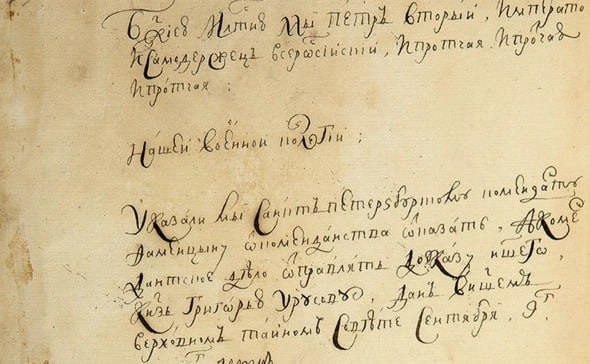 Бжиею Млтию Мы Петръ вторый, Императо
Исамодержецъ всеросїискїй, Ипротчая Ипротчая
Ипротчая :
Нашей военной колегїи ;
Указали мы Санктъ петерзбургскому коменданту
Фаминцыну ѿкомендантства ѿказать, Акоме
дантское дѣло ѿправлять доуказу ншего,
Кнзь Григорью Урусову, Данъ внашемъ
верховномъ тайномъ Советѣ Сентября, 9г